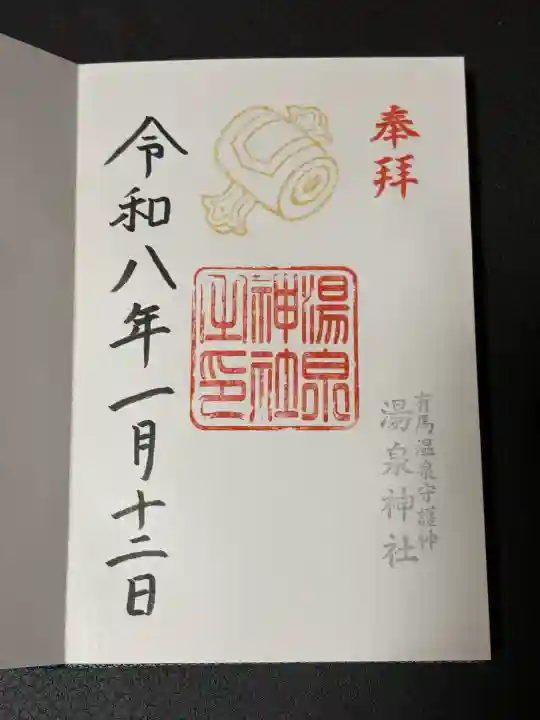 奉拝
有馬温泉守護神
湯泉神社
湯泉
神社
之印
令和八年一月十二日